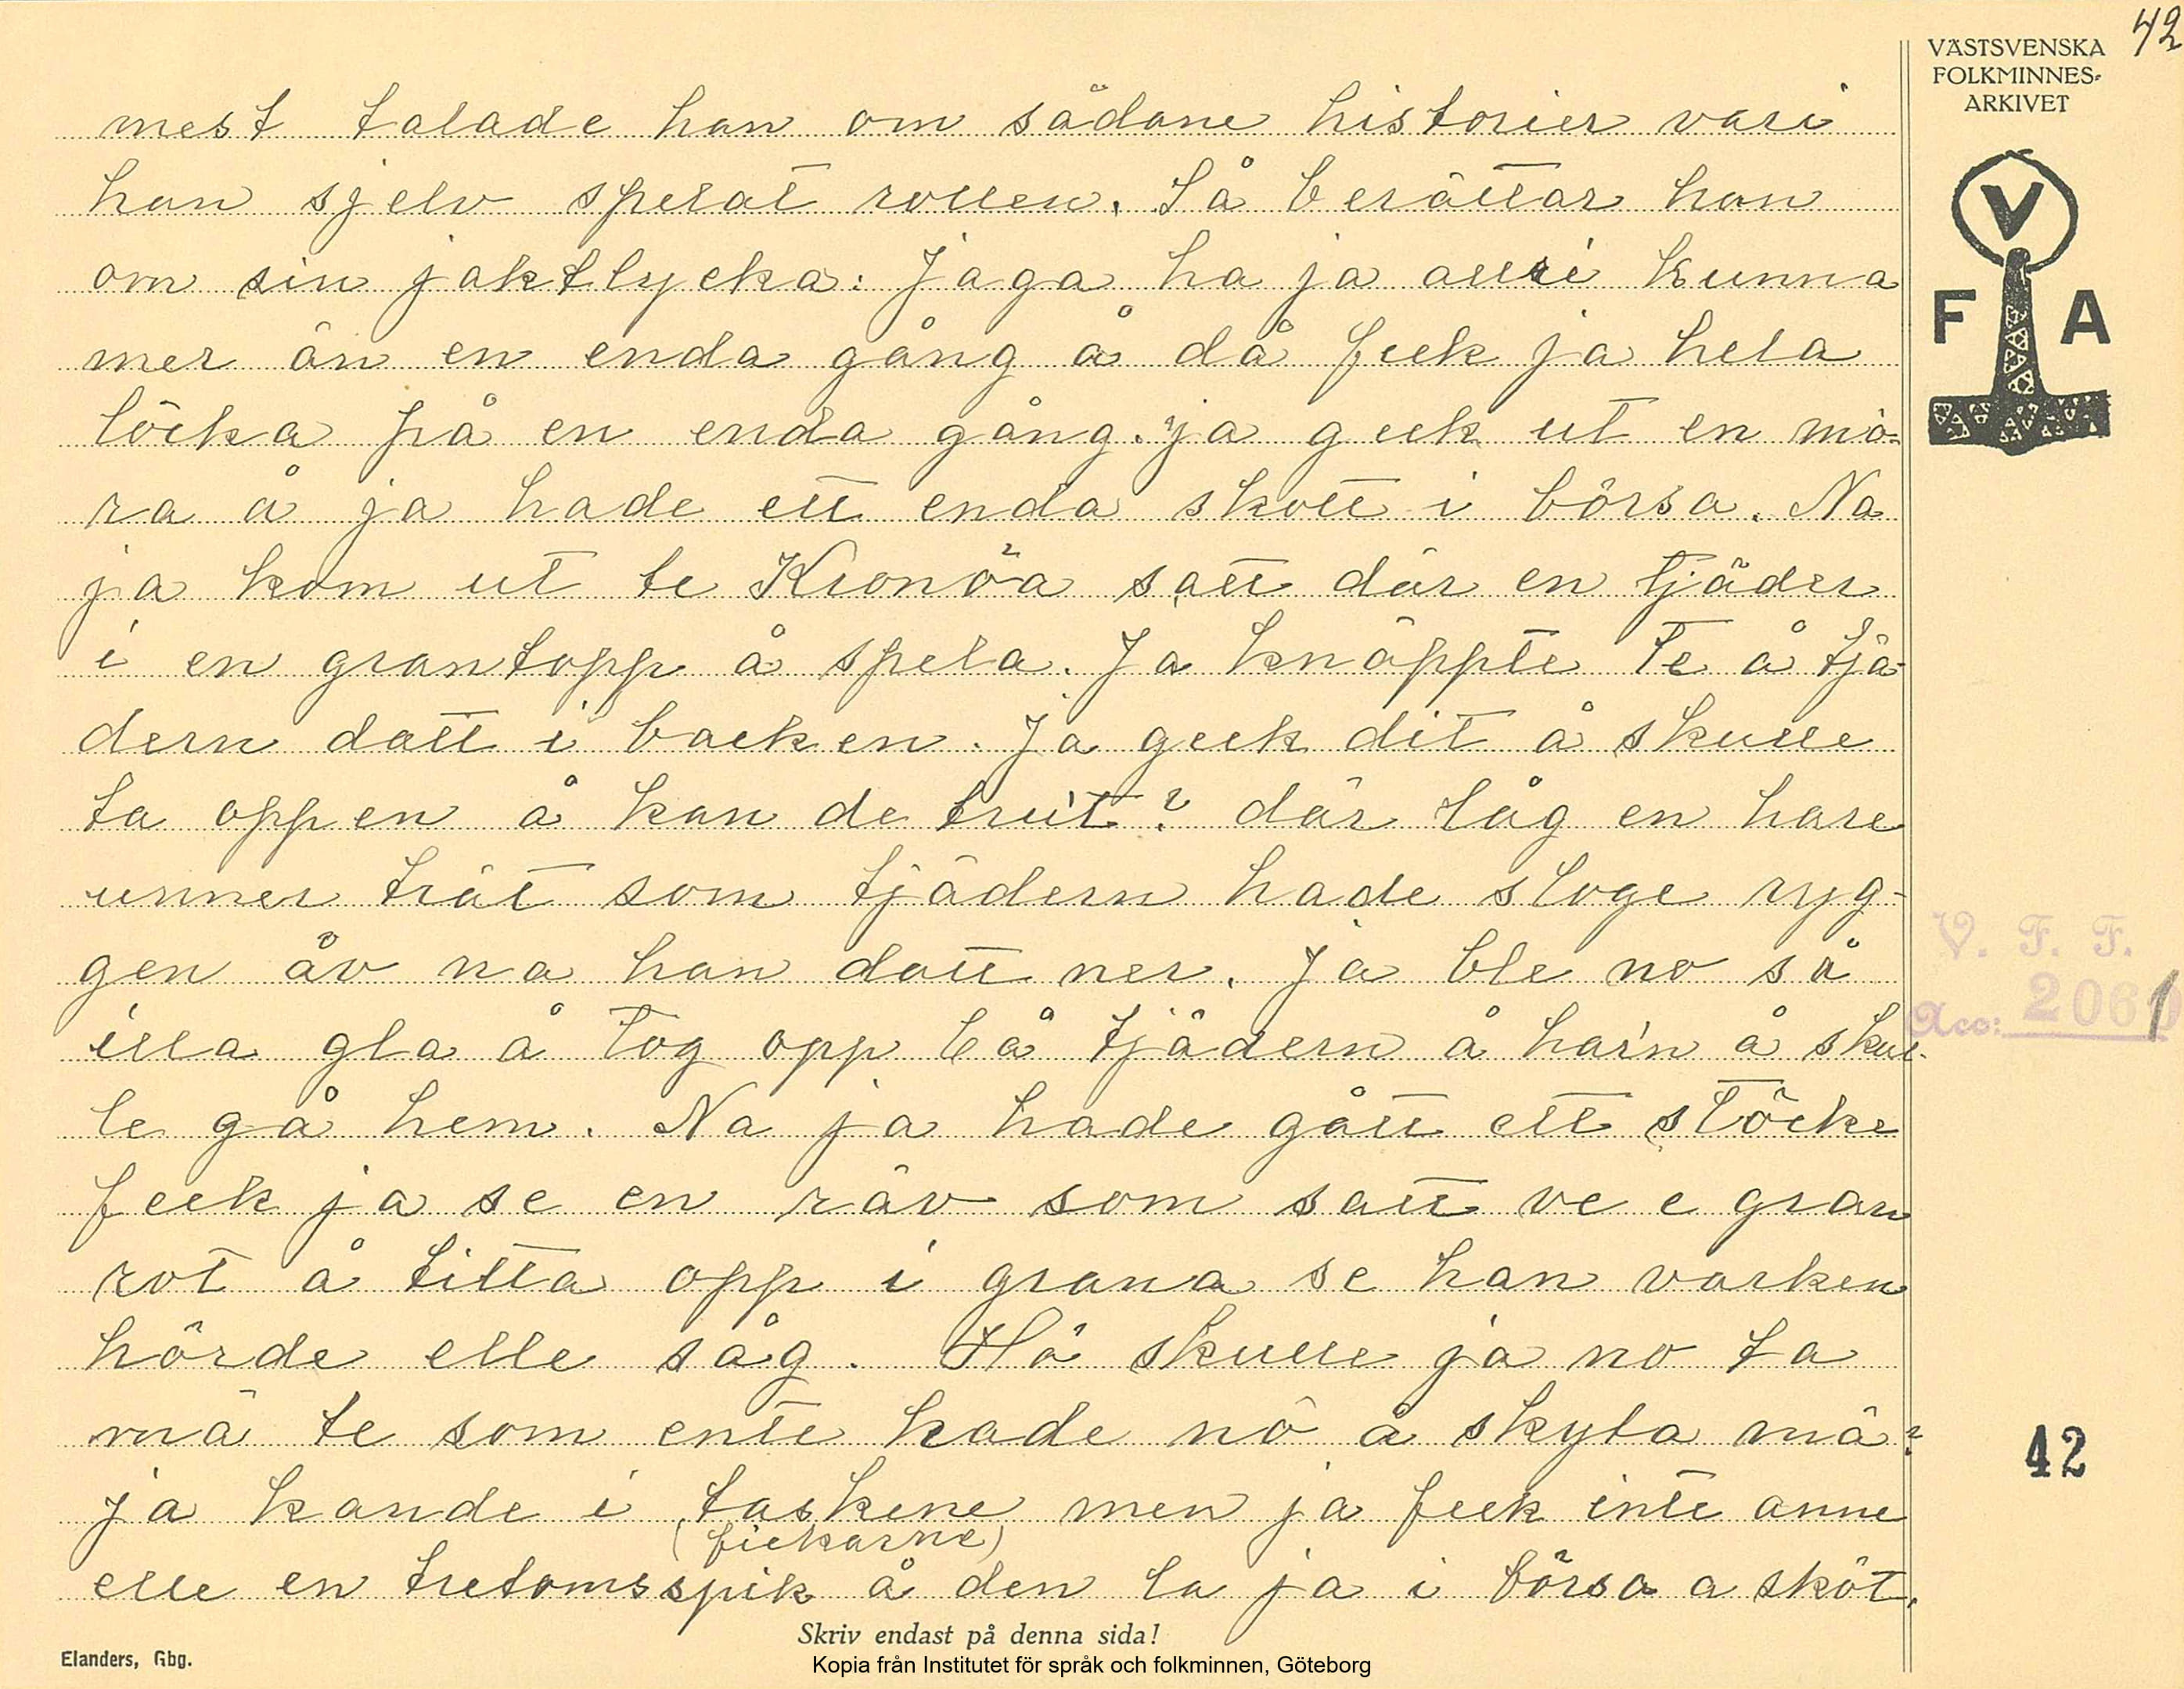 42
VÄSTSVENSKA
FOLKMINNES-
ARKIVET
V
F A
mest talade han om sådane historier vari
han sjelv spelat rollen. Så berättar han
om sin jaktlycka: Jaga ha ja alri kunna
mer än en enda gång å då feck ja hela
löcka på en enda gång. ja geck ut en mö-
ra å ja hade ett enda skott i börsa. Na
ja kom ut te Kronöa satt där en tjäder
i en grantopp å spela. Ja knäppte te å tjä-
dern datt i backen. Ja geck dit å skulle
ta oppen å kan de truit? där låg en hare
unner trät som tjädern hade sloge ryg-
gen åv na han datt ner. Ja ble no så
illa gla å tog opp bå tjädern å har'n å skul-
le gå hem. Na ja hade gått ett stöcke
feck ja se en räv som satt ve e gran
rot å titta opp i grana se han varken
hörde elle såg. Hå skulle ja no ta
mä te som ente hade nö å skyta mä?
ja kande i taskene men ja feck inte anne
(fickarne)
elle en tretomsspik å den la ja i börsa a sköt.
V. F. F.
Acc: 2061
42
Skriv endast på denna sida!
Elanders, Gbg.
Kopia från Institutet för språk och folkminnen, Göteborg